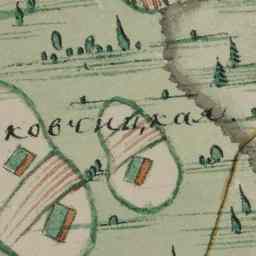 ковчицкая.